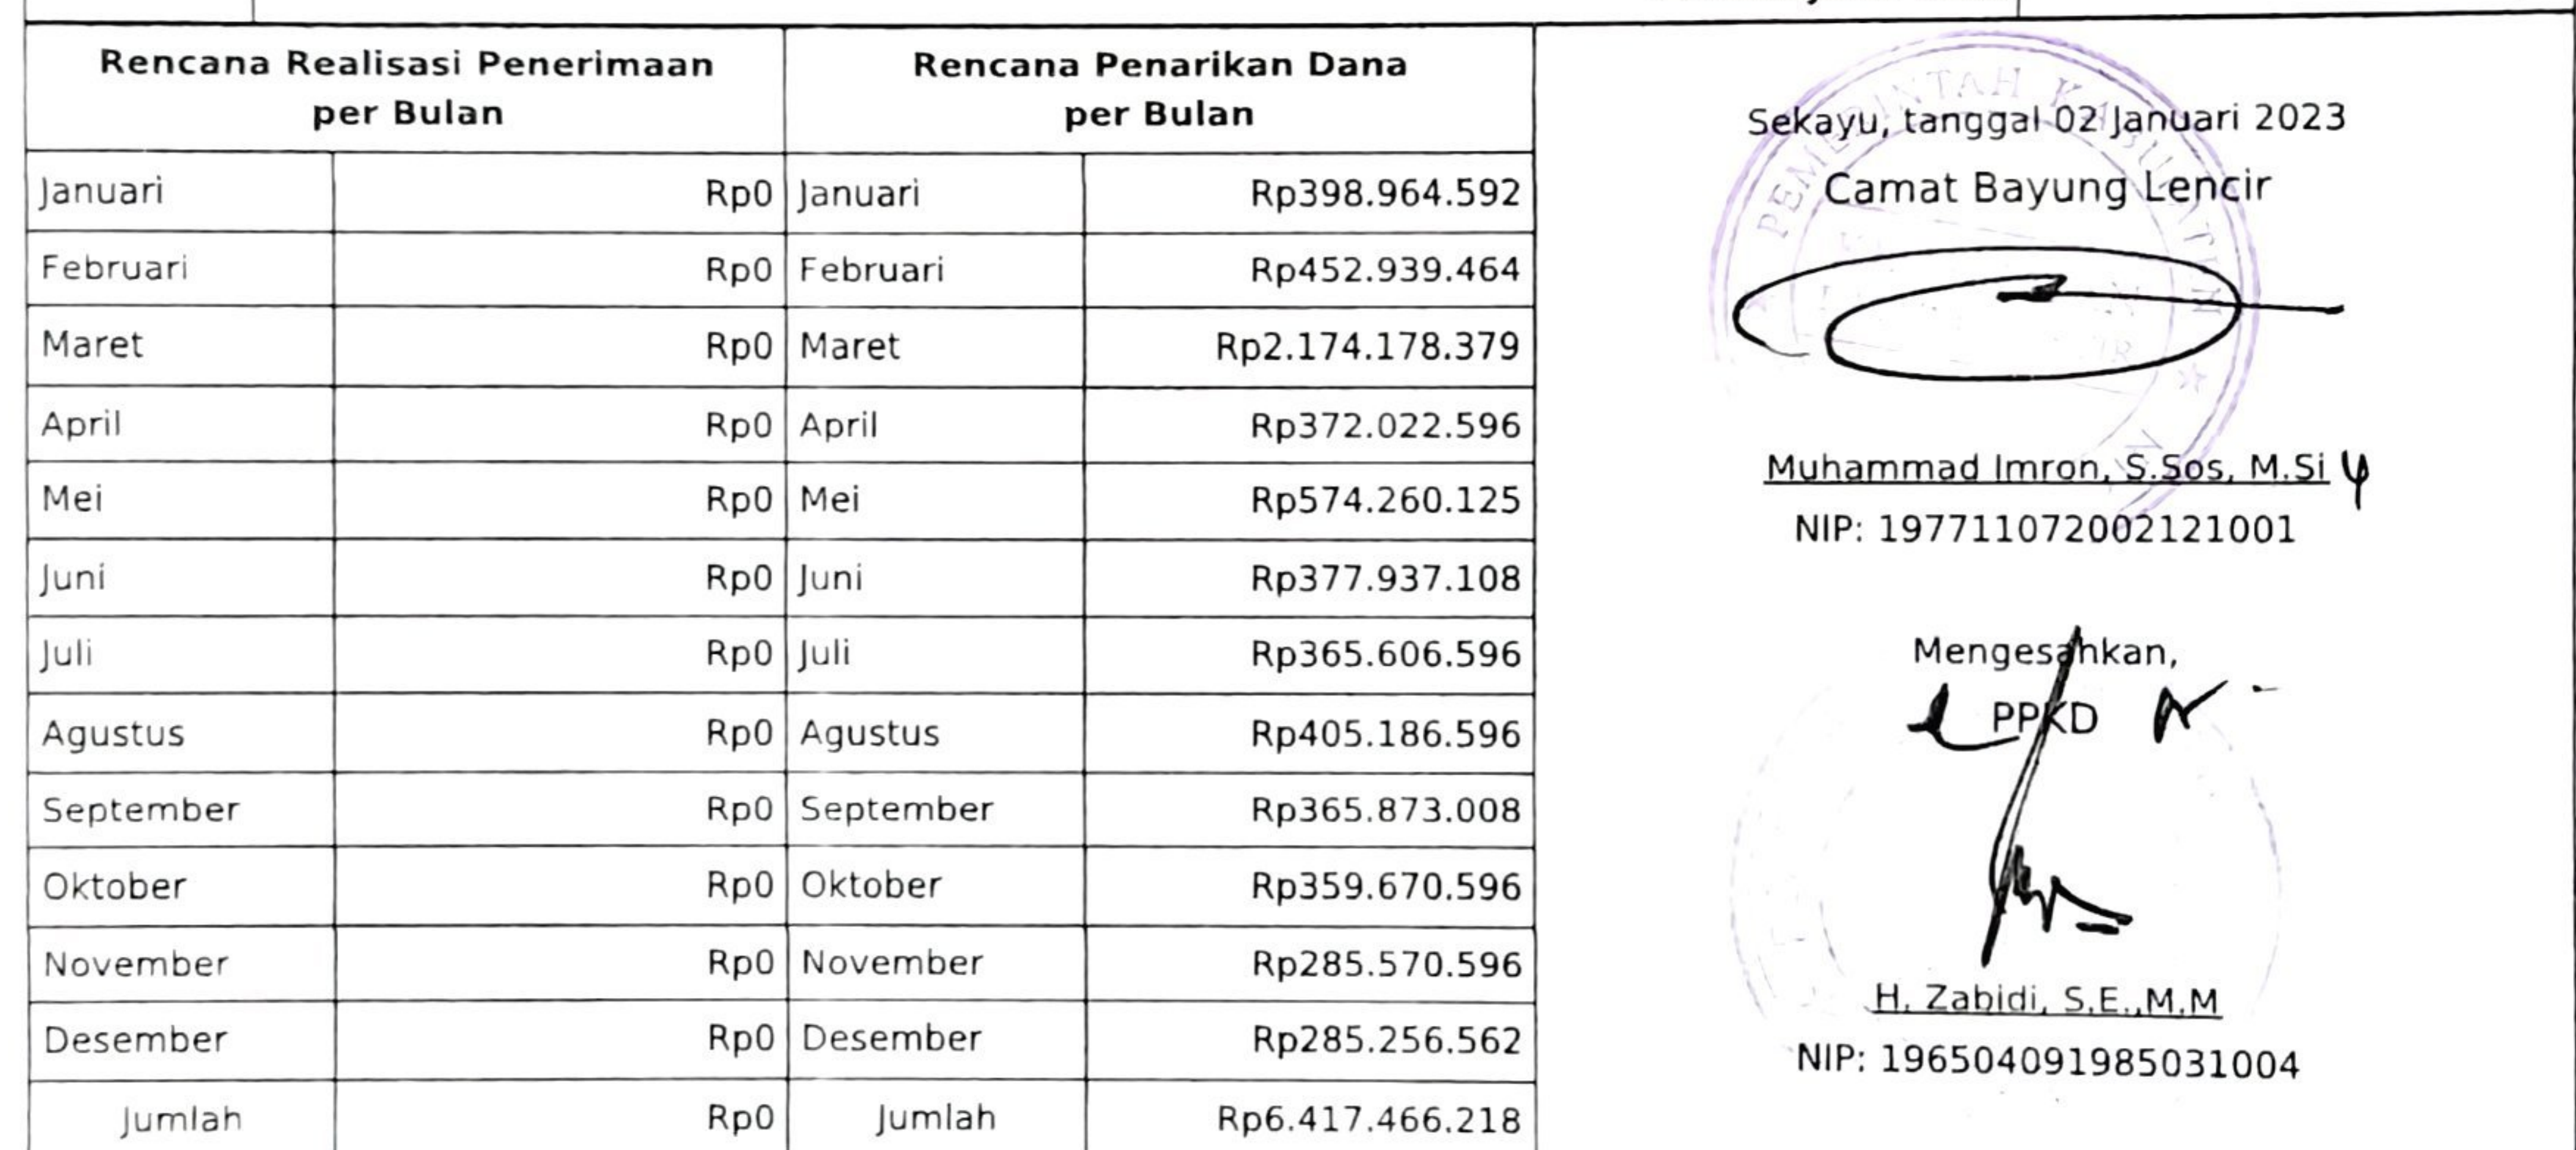 Rencana Realisasi Penerimaan
per Bulan
Rencana Penarikan Dana
per Bulan
Januari Rp0 Januari Rp398.964.592
Februari Rp0 Februari Rp452.939.464
Maret Rp0 Maret Rp2.174.178.379
April Rp0 April Rp372.022.596
Mei Rp0 Mei Rp574.260.125
Juni Rp0 Juni Rp377.937.108
Juli Rp0 Juli Rp365.606.596
Agustus Rp0 Agustus Rp405.186.596
September Rp0 September Rp365.873.008
Oktober Rp0 Oktober Rp359.670.596
November Rp0 November Rp285.570.596
Desember Rp0 Desember Rp285.256.562
Jumlah Rp0 Jumlah Rp6.417.466.218
Sekayu, tanggal 02 Januari 2023
Camat Bayung Lencir
PEMERINTAH KABUPATEN
Muhammad Imron, S.Sos, M.Si
NIP: 197711072002121001
Mengesahkan,
PPKD
H. Zabidi, S.E.,M.M
NIP: 196504091985031004